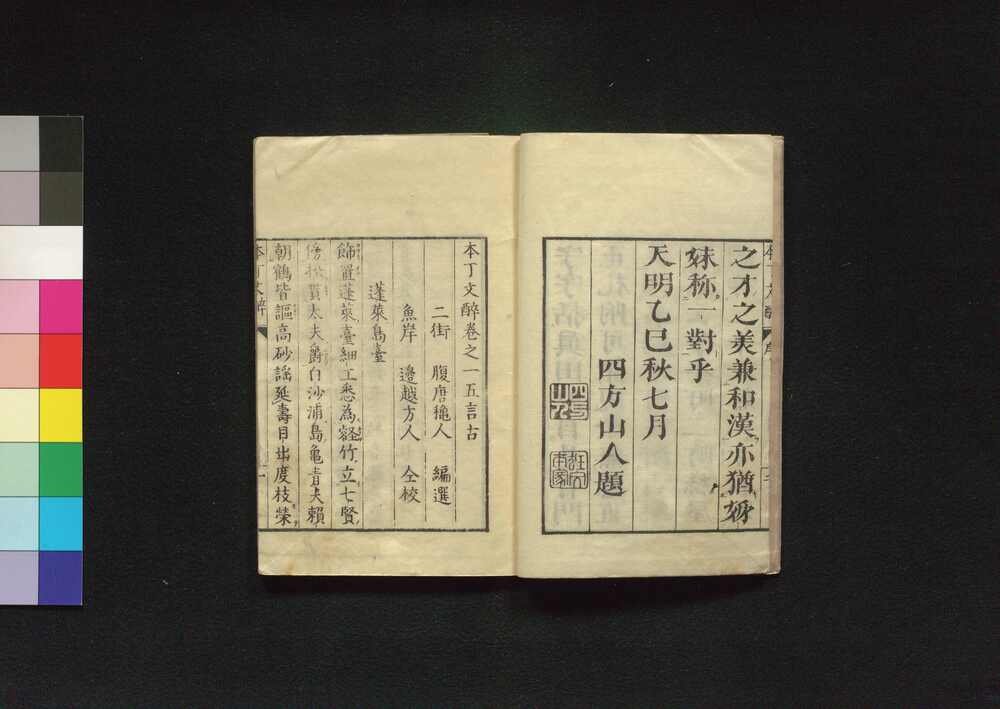 之才之美兼和漢亦猶妍
妹称一對乎
天明乙巳秋七月
四方山人題
本丁文醉卷之一五言古
二街 腹唐龝人 編選
魚岸 邉越方人 仝校
蓬萊島臺
飾置蓬萊臺細工悉為経竹立七賢
傍松貫太夫爵白沙浦島亀青夫頼
朝鶴皆謳高砂謡延壽目出度枝榮
本丁文醉